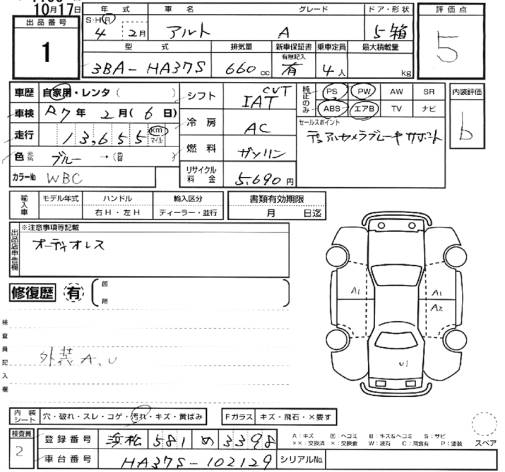 10月17日
出品番号
1
年式
車名
グレード
ドア・形状
S・H・R
4年2月
アルト
A
5箱
評価点
5
型式
排気量
新車保証書
有無記入
乗車定員
最大積載量
3BA-HA37S
660cc
有
4人
kg
車歴
自家用・レンタ()
シフト
CVT
IAT
純正のみ
PS
PW
AW
SR
ABS
エアB
TV
ナビ
内装評価
b
車検
R7年2月(6日)
冷房
AC
セールスポイント
デュアルカメラブレーキサポート
走行
13,655
km
マイル
色
ブルー→()
燃料
ガソリン
カラーNo
WBC
リサイクル料金
5,690円
輸入車
モデル年式
ハンドル
右H・左H
輸入区分
ディーラー・並行
書類有効期限
月 日迄
※注意事項等記載
オーディオレス
修復歴
有
検査員記入欄
外装A、U
A1
A1
A2
U1
内装シート
穴・破れ・スレ・コゲ・汚れ・キズ・黄ばみ
Fガラス
キズ・飛石・×要す
検査員
2
登録番号
浜松 581 め 3398
車台番号
HA37S-102129
シリアルNo
A:キズ U:ヘコミ B:キズ&ヘコミ S:サビ
スペア